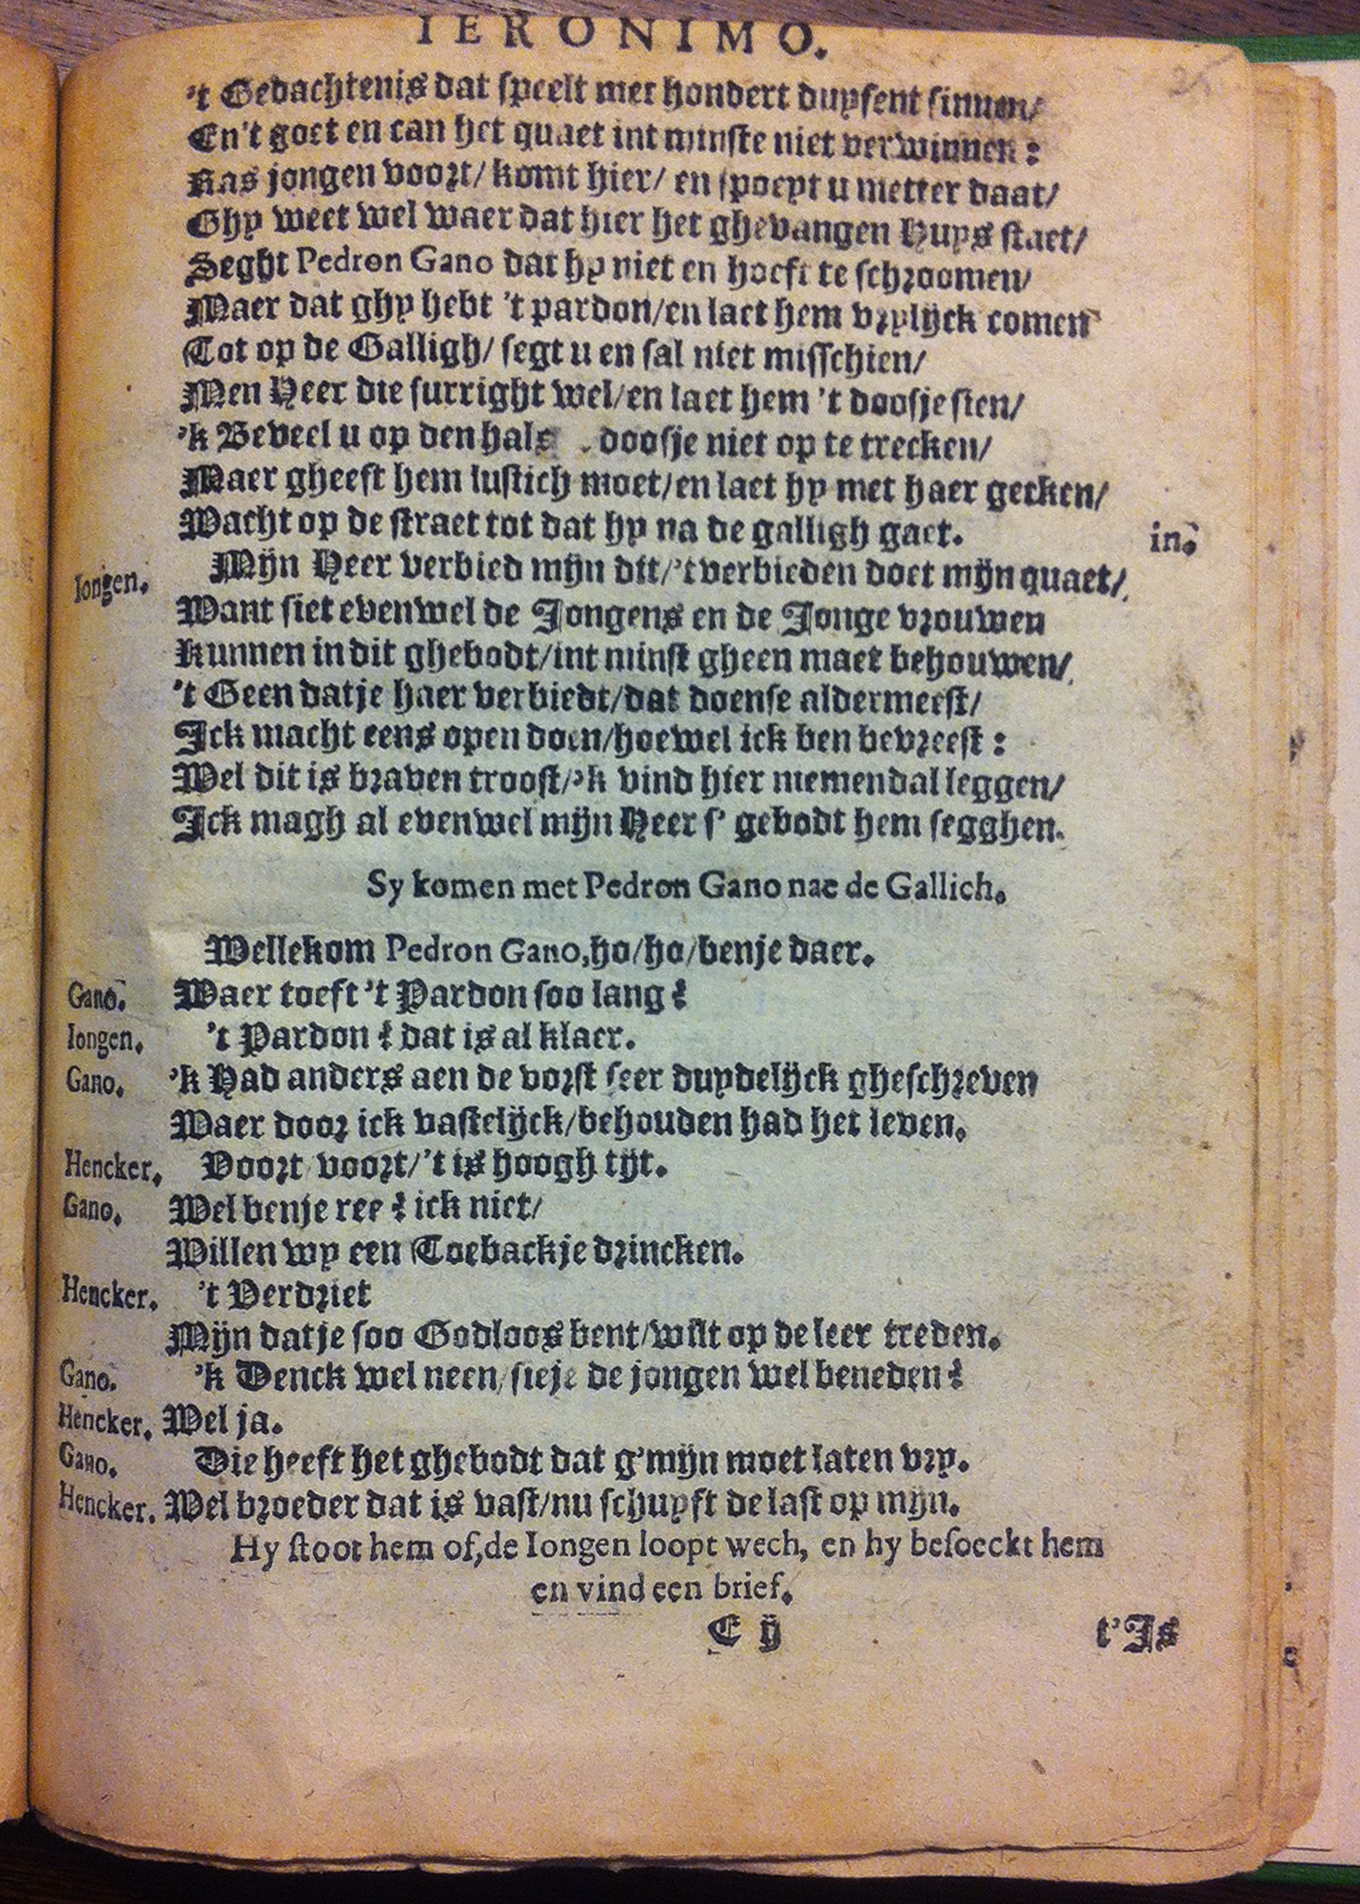 IERONIMO.
25
't Gedachtenis dat speelt met hondert duysent sinnen/
En't goet en can het quaet int minste niet verwinnen:
Ras jongen voort/ komt hier/ en spoeyt u metter daat/
Ghy weet wel waer dat hier het ghevangen Huys staet/
Seght Pedron Gano dat hy niet en hoeft te schroomen/
Maer dat ghy hebt 't pardon/en laet hem vrylijck comen
Tot op de Galligh/ segt u en sal niet misschien/
Men Heer die surright wel/en laet hem 't doosje sien/
'k Beveel u op den hals doosje niet op te trecken/
Maer gheeft hem lustich moet/en laet hy met haer gecken/
Wacht op de straet tot dat hy na de galligh gaet. in.
Iongen. Mijn Heer verbied mijn dit/'t verbieden doet mijn quaet/
Want siet evenwel de Jongens en de Jonge vrouwen
Kunnen in dit ghebodt/int minst gheen maet behouwen/
't Geen datje haer verbiedt/dat doense aldermeest/
Ick macht eens open doen/hoewel ick ben bevreest:
Wel dit is braven troost/'k vind hier niemendal leggen/
Ick magh al evenwel mijn Heer s' gebodt hem segghen.
Sy komen met Pedron Gano nae de Gallich.
Wellekom Pedron Gano,ho/ho/benje daer.
Gano. Waer toeft 't Pardon soo lang?
Iongen. 't Pardon? dat is al klaer.
Gano. 'k Had anders aen de vorst seer duydelijck gheschreven
Waer door ick vastelijck/behouden had het leven.
Hencker. Voort voort/'t is hoogh tijt.
Gano. Wel benje ree? ick niet/
Willen wy een Toebackje drincken.
Hencker. 't Verdriet
Mijn datje soo Godloos bent/wilt op de leer treden.
Gano. 'k Denck wel neen/sieje de jongen wel beneden?
Hencker. Wel ja.
Gano. Die heeft het ghebodt dat g'mijn moet laten vry.
Hencker. Wel broeder dat is vast/nu schuyft de last op mijn.
Hy stoot hem of,de Iongen loopt wech, en hy besoeckt hem
en vind een brief.
E ij t'Is